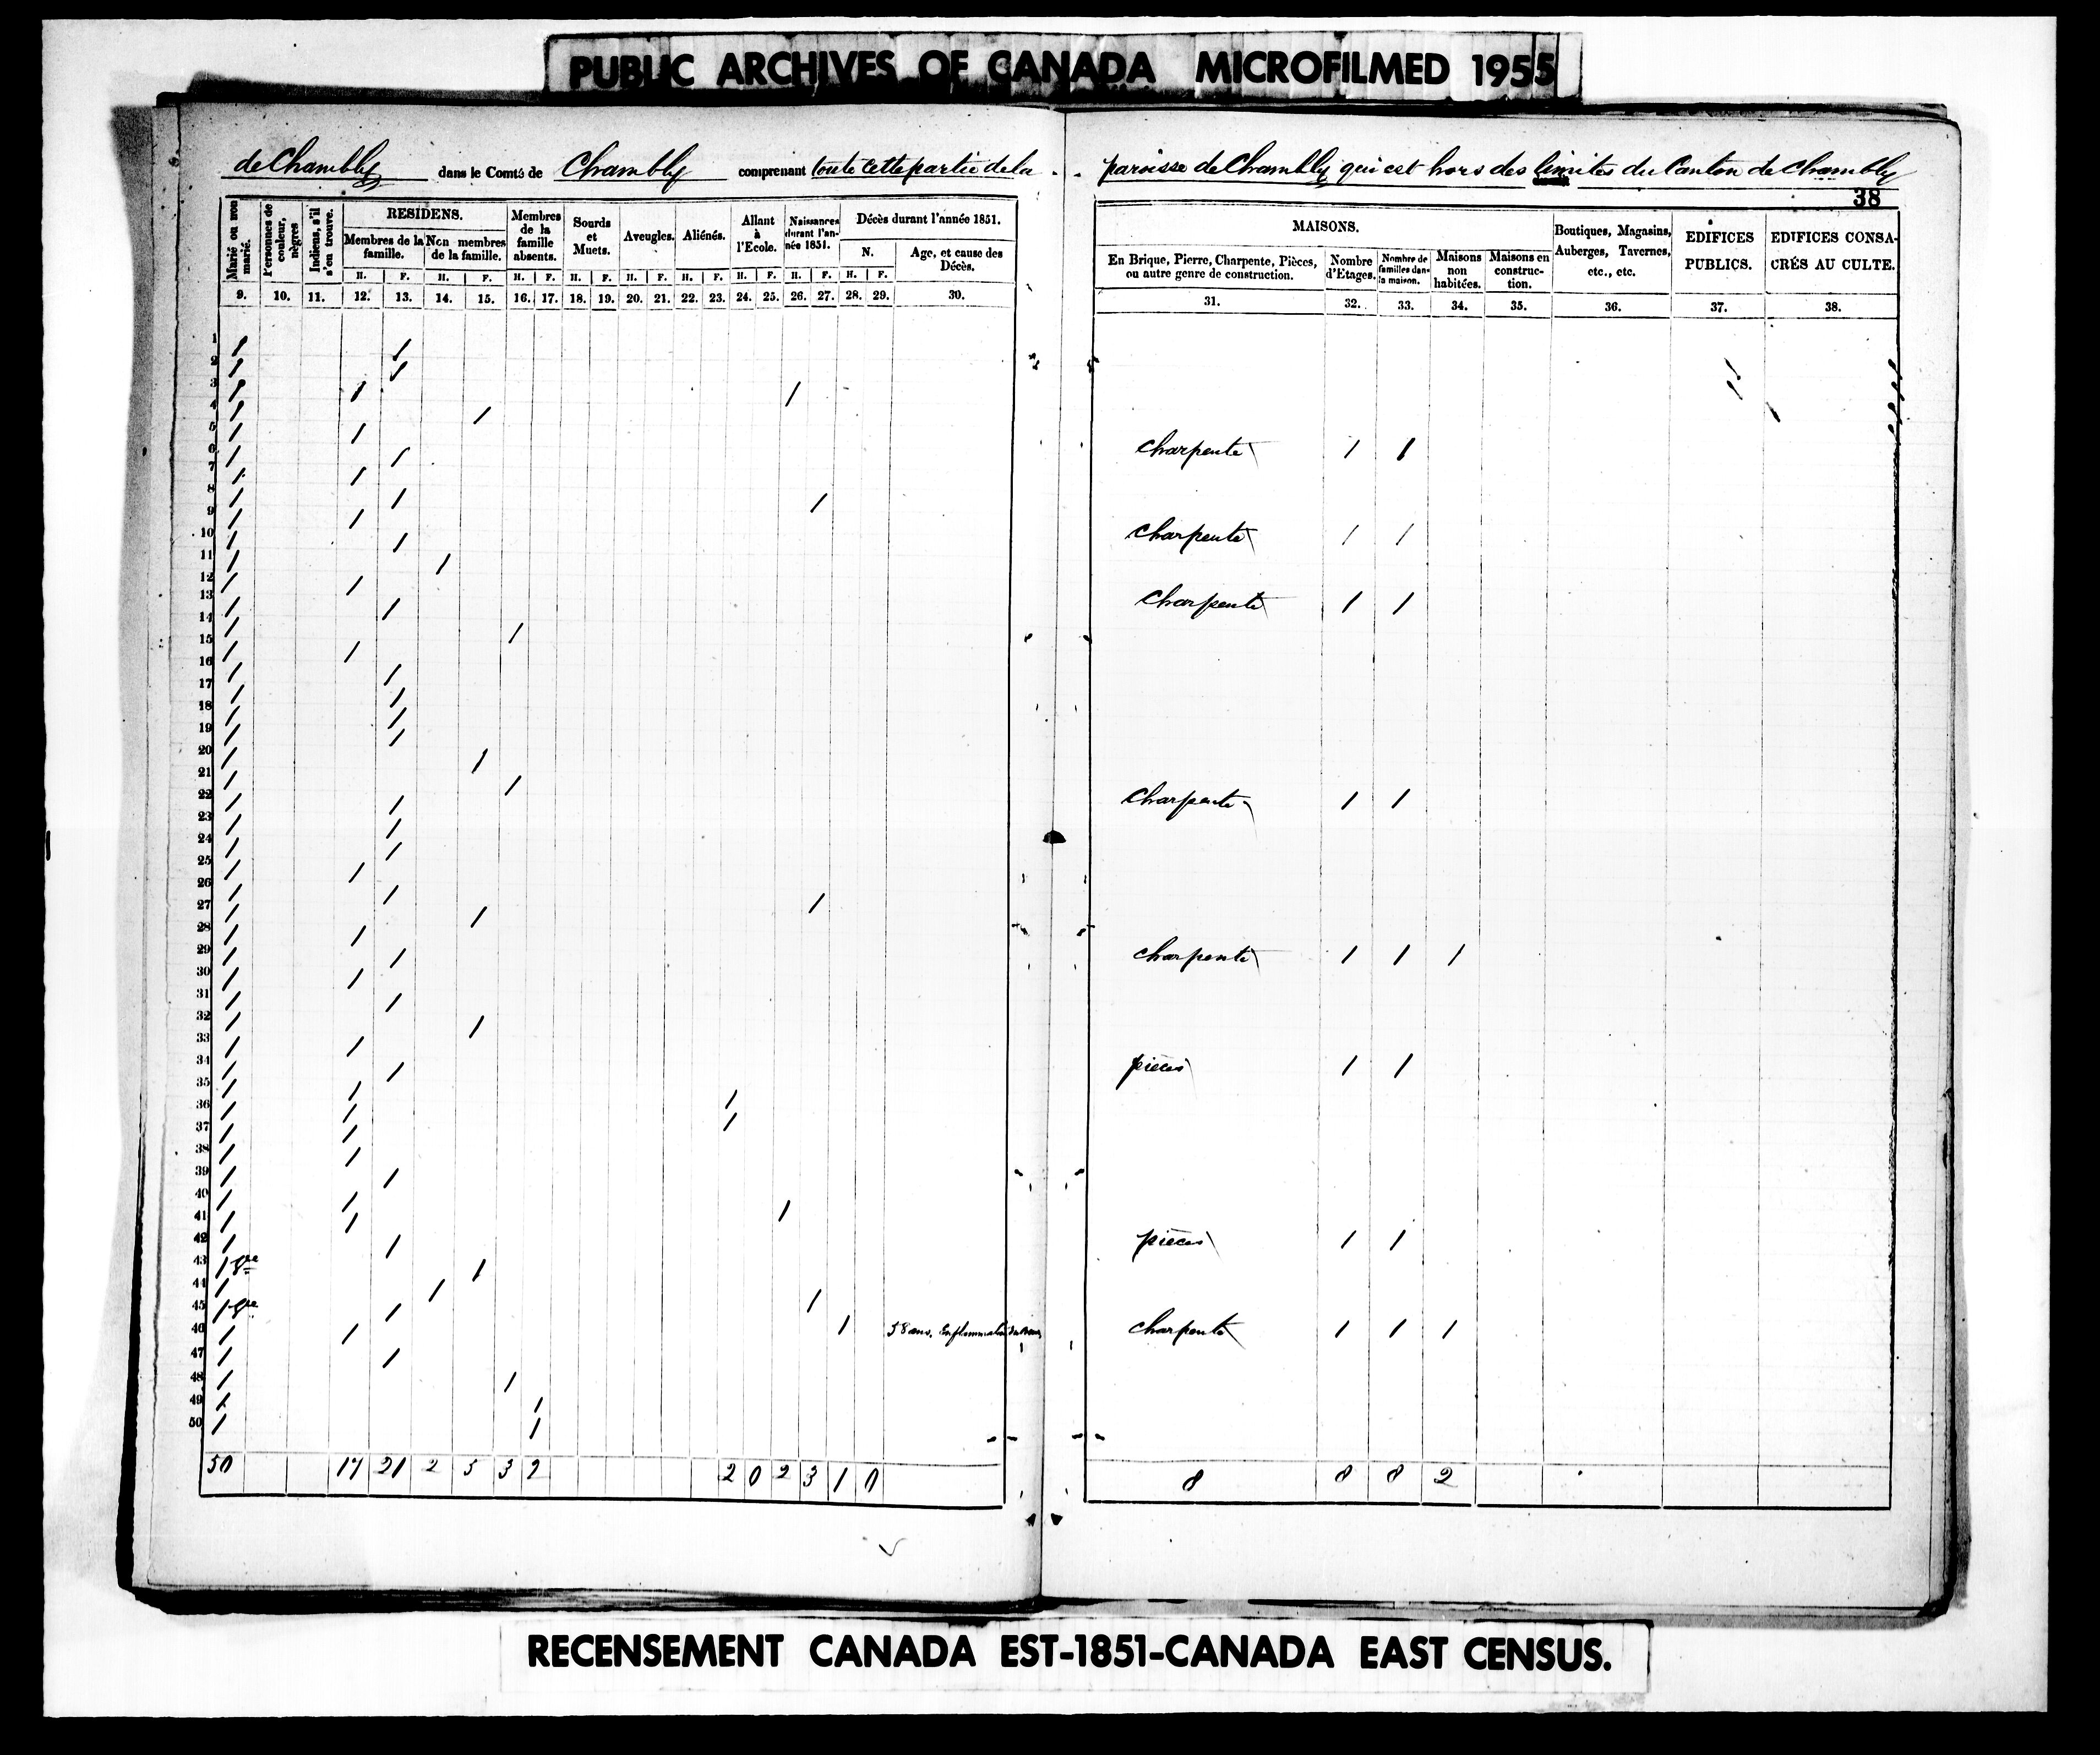 PUBLIC ARCHIVES OF CANADA MICROFILMED 1955
de Chambly dans le Comté de Chambly comprenant toute cette partie de la
paroisse de Chambly qui est hors des limites du Canton de Chambly
38
Marié ou non marié.
Personnes de couleur, nègres
Indiens, s'il s'en trouve.
RESIDENS.
Membres de la famille.
Non membres de la famille.
Membres de la famille absents.
Sourds et Muets.
Aveugles.
Aliénés.
Allant à l'Ecole.
Naissances durant l'année 1851.
Décès durant l'année 1851.
N.
Age, et cause des Décès.
H. F. H. F. H. F. H. F. H. F. H. F. H. F. H. F. H. F.
9. 10. 11. 12. 13. 14. 15. 16. 17. 18. 19. 20. 21. 22. 23. 24. 25. 26. 27. 28. 29. 30.
MAISONS.
En Brique, Pierre, Charpente, Pièces, ou autre genre de construction.
Nombre d'Etages.
Nombre de familles dans la maison.
Maisons non habitées.
Maisons en construction.
Boutiques, Magasins, Auberges, Tavernes, etc., etc.
EDIFICES PUBLICS.
EDIFICES CONSACRÉS AU CULTE.
31. 32. 33. 34. 35. 36. 37. 38.
1 / /
2 / /
3 / / /
4 / /
5 / /
6 / /
7 / /
8 / / /
9 / /
10 / /
11 / /
12 / /
13 / /
14 / /
15 / /
16 / /
17 / /
18 / /
19 / /
20 / /
21 / /
22 / /
23 / /
24 / /
25 / /
26 / / /
27 / /
28 / /
29 / /
30 / /
31 / /
32 / /
33 / /
34 / /
35 / / /
36 / / /
37 / /
38 / /
39 / /
40 / / /
41 / /
42 / /
43 /
44 / / /
45 /
46 / / / 58 ans.
47 / /
48 / /
49 / /
50 / /
50 17 21 2 5 3 2 2 0 2 3 1 0
charpente 1 1
charpente 1 1
charpente 1 1
charpente 1 1
charpente 1 1 1
pièces 1 1
pièces 1 1
charpente 1 1 1
8 8 8 2
RECENSEMENT CANADA EST-1851-CANADA EAST CENSUS.